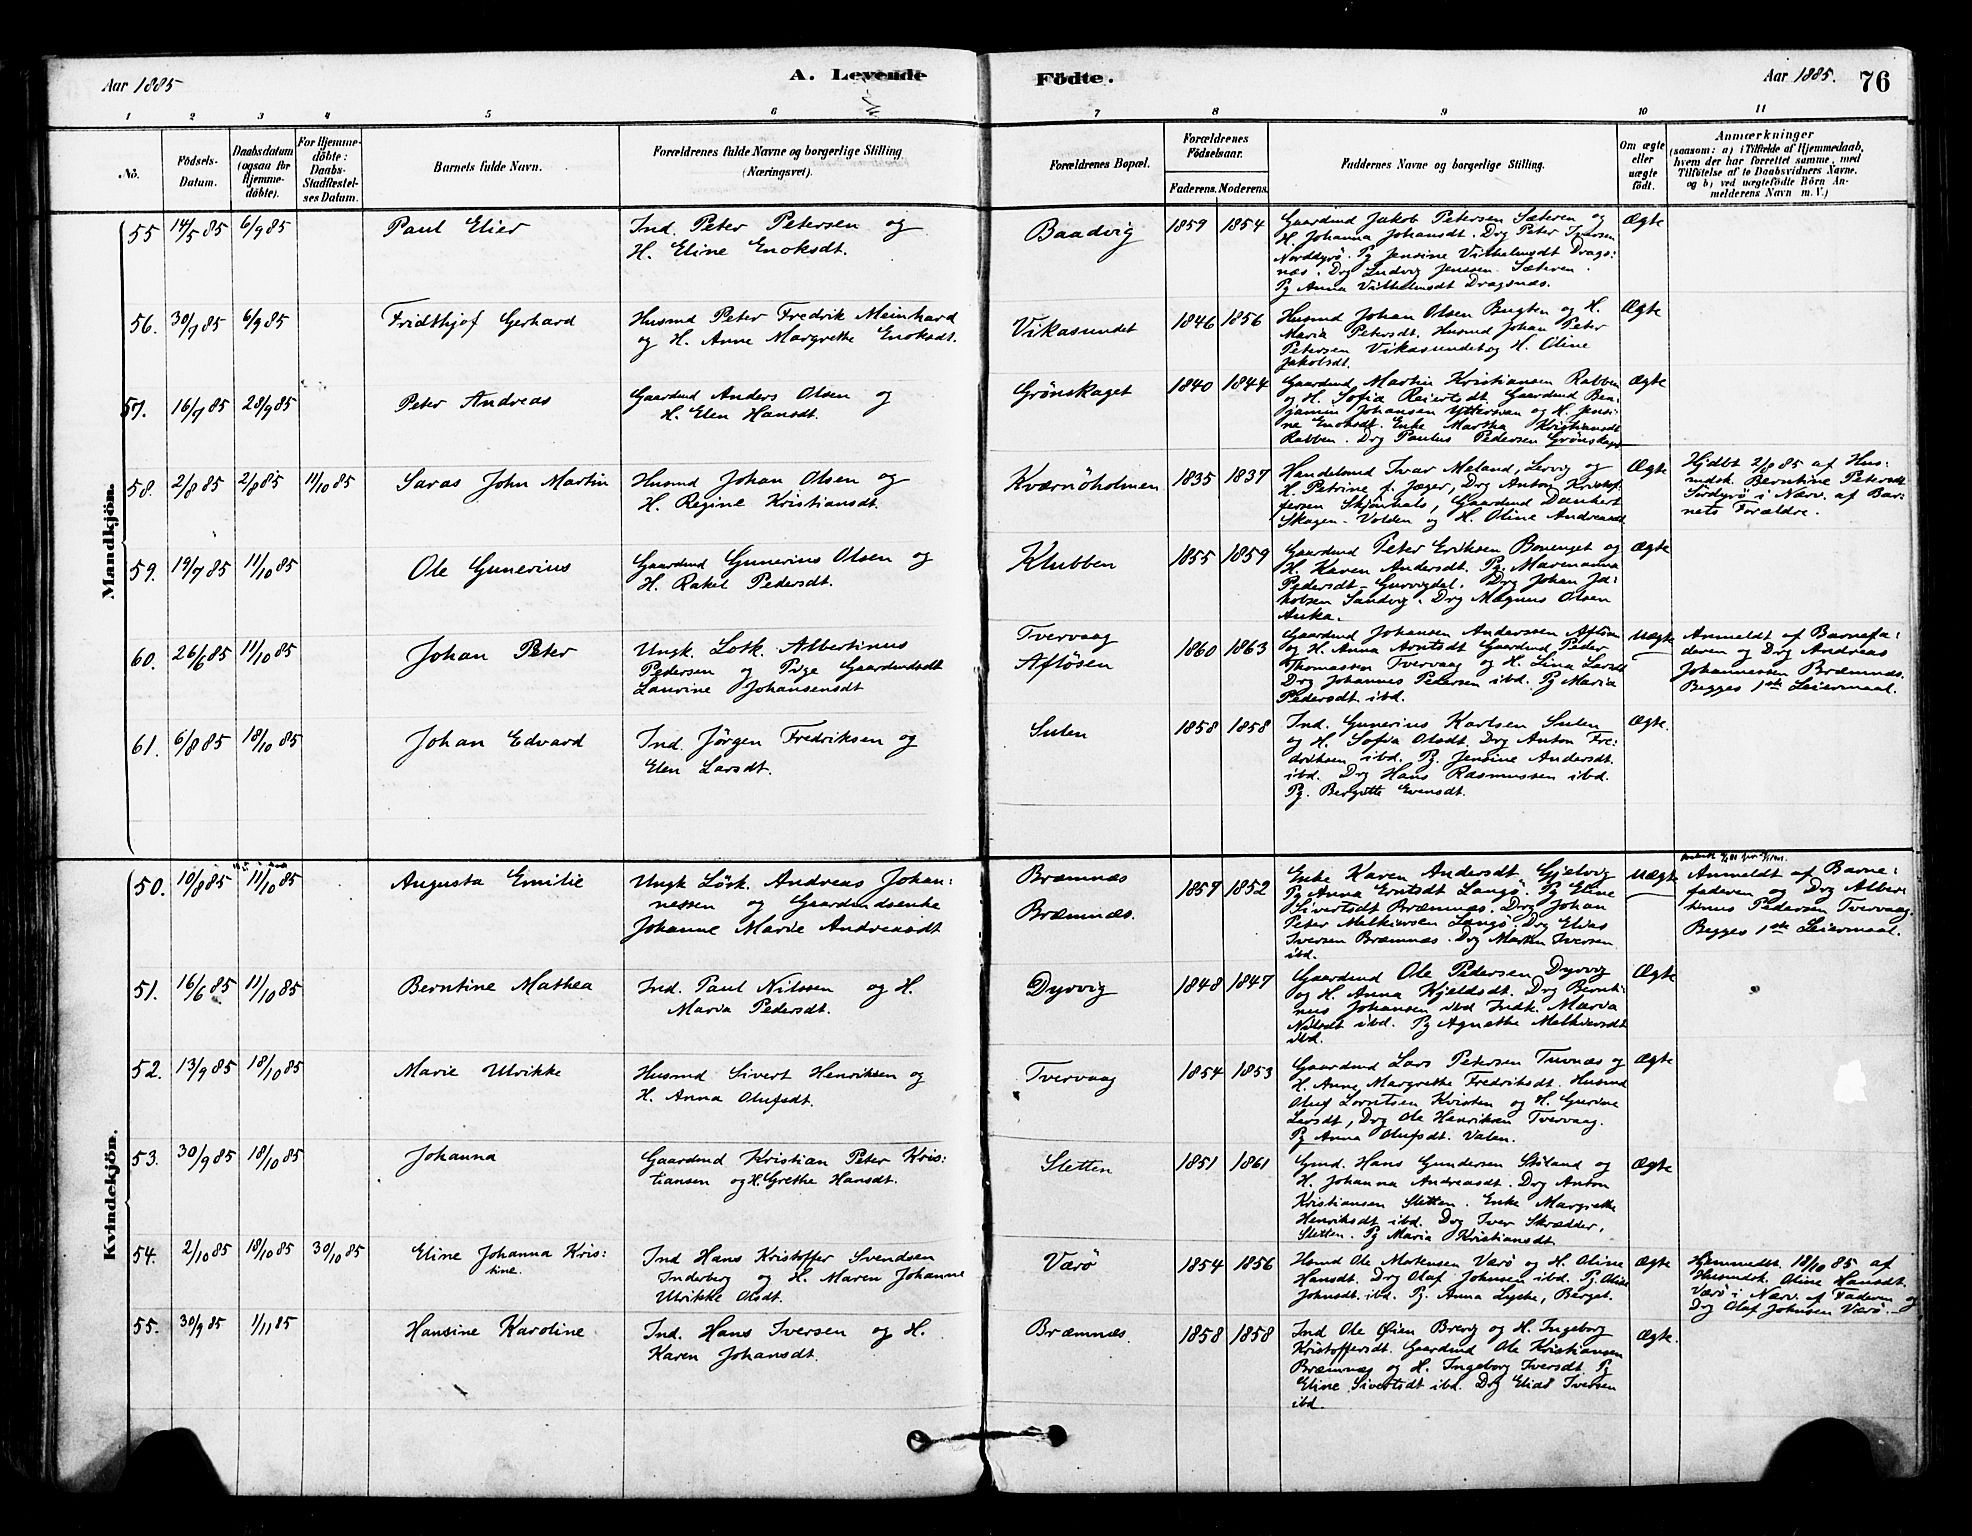 Aar 1885
A. Levende
Födte.
Aar 1885.
76
1 2 3 4 5 6 7 8 9 10 11
No.
Födsels-
Datum.
Daabsdatum
(ogsaa for
Hjemme-
döbte).
For Hjemme-
döbte:
Daabs-
Stadfæstel-
ses Datum.
Barnets fulde Navn.
Forældrenes fulde Navne og borgerlige Stilling
(Næringsvei).
Forældrenes Bopæl.
Forældrenes
Födselsaar.
Faderens. Moderens.
Faddernes Navne og borgerlige Stilling.
Om ægte
eller
uægte
födt.
Anmærkninger
(saasom: a) i Tilfælde af Hjemmedaab,
hvem der har forrettet samme, med
Tilföielse af to Daabsvidners Navne,
og b) ved uægtefödte Börn An-
melderens Navn m. V.)
Mandkjön.
55 14/5 85 6/9 85
Paul Elier
Ind. Peter Petersen og
H. Eline Enoksdt.
Baadvig
1859 1854
Gaardmd Jakob Petersen Sæteren og
H. Johanna Johansdt. Drg Peter Iversen
Norddyrö. Pg Jensine Vilhelmsdt Drags:
næs. Drg Ludvig Jenssen Sæteren.
Pg Anna Vilhelmsdt Dragsnæs.
Ægte
56. 30/7 85 6/9 85
Fridthjof Gerhard
Husmd Peter Fredrik Meinhard
og H. Anne Margrethe Enoksdt.
Vikasundet
1846 1856
Husmd Johan Olsen Bugten og H.
Maria Petersdt. Husmd Johan Peter
Petersen Vikasundet og H. Oline
Jakobsdt.
Ægte
57. 16/7 85 28/9 85
Peter Andreas
Gaardmd Anders Olsen og
H. Elen Hansdt.
Grönskaget
1840 1844
Gaardmd Martin Kristiansen Rabben
og H. Sofia Reiertsdt. Gaardmd Ben
jamin Johansen og H. Jensi:
ne Enoksdt. Enke Martha Kristiansdt
Rabben. Drg Paulus Pedersen Grönskaget
Ægte
58. 2/8 85 2/8 85 11/10 85
Saras John Martin
Husmd Johan Olsen og
H. Regine Kristiansdt.
Kværnöholmen
1835 1837
Handelsmd Ivar Meland, Lervig og
H. Petrine f. Jæger, Drg Anton Kristof
fersen Skjönhals, Gaardmd Dankert
Skagen-Volden og H. Oline Andreasdt
Ægte
Hjdbt 2/8 85 af Hus:
mdsk. Berntine Petersdt
Sördyrö i Nærv. af Bar:
nets Forældre.
59. 19/7 85 11/10 85
Ole Gunerius
Gaardmd Gunerius Olsen og
H. Rakel Pedersdt.
Klubben
1855 1859
Gaardmd Peter Eriksen Bonenget og
H. Karen Andersdt. Pg. Marenanna
Pedersdt - Gurvigdal. Drg Johan Ja:
kobsen Sandvig. Drg Magnus Olsen
Anka.
Ægte
60. 26/6 85 11/10 85
Johan Peter
Ungk. Losk. Albertinus
Pedersen og Pige Gaardmdsdt
Laurine Johansensdt
Tvervaag
Aflösen
1860 1863
Gaardmd Johansen Anderssen Aflösen
og H. Anna Arntsdt Gaardmd Peder
Thomassen Tvervaag og H. Lina Larsdt
Drg Johannes Pedersen ibd. Pg Maria
Pedersdt ibd.
Uægte
Anmeldt af Barnefa:
deren og Drg Andreas
Johannessen Bræmnæs.
Begges 1ste Leiermaal.
61. 6/8 85 18/10 85
Johan Edvard
Ind. Jörgen Fredriksen og
Elen Larsdt.
Sulen
1858 1858
Ind. Gunerius Karlsen Sulen
og H. Sofia Olsdt. Drg Anton Fre:
driksen ibd. Pg. Jensine Andersdt.
ibd. Drg Hans Rasmussen ibd.
Pg. Bergitte Evensdt.
Ægte.
Kvindekjön.
50. 10/8 85 11/10 85
Augusta Emilie
Ungk Lösk. Andreas Johan:
nessen og Gaardmdsenke
Johanne Marie Andreasdt
Bræmnæs
Bræmnæs.
1857 1852
Enke Karen Andersdt Gjelvig
Pg Anna Erntsdt Langö. Pg Eline
Sivertsdt Bræmnæs. Drg Johan
Peter Melkiorsen Langö. Drg Elias
Iversen Bræmnæs. Drg Martin Iversen
ibd.
Uægte
Anmeldt af Barne:
faderen og Drg Alber:
tinus Pedersen Tvervaag.
Begges 1ste Leiermaal.
51. 16/6 85 11/10 85
Berntine Mathea
Ind. Paul Nilssen og H.
Maria Pedersdt.
Dyrvig
1848 1847
Gaardmd Ole Pedersen Dyrvig
og H. Anna Kjeldsdt. Drg Bernti:
nus Johansen ibd Indk. Maria
Nilsdt ibd. Pg Agnethe Melkiorsdt
ibd.
Ægte
52. 13/9 85 18/10 85
Marie Ulrikke
Husmd Sivert Henriksen og
H. Anna Olufsdt.
Tvervaag
1854 1853
Gaardmd Lars Petersen Tuvnæs og
H. Anne Margrethe Fredriksdt. Husmd
Oluf Lorntsen Kvisten og H. Gurine
Larsdt, Drg Ole Henriksen Tvervaag.
Pg Anna Olufsdt. Valen.
Ægte
53. 30/9 85 18/10 85
Johanna
Gaardmd Kristian Peter Kris:
tiansen og H. Grethe Hansdt.
Sletten
1851 1861
Gmd. Hans Gundersen Stöland og
H. Johanna Andreasdt. Drg Anton
Kristiansen Sletten. Enke Margrethe
Henriksdt ibd. Drg Iver Skrædder,
Sletten. Pg Maria Kristiansdt
Ægte
54. 2/10 85 18/10 85 30/10 85
Eline Johanna Kris:
tine.
Ind Hans Kristoffer Svendsen
Inderberg og H. Maren Johanne
Ulrikke Olsdt.
Værö
1854 1856
Husmd Ole Mortensen Værö og H. Oline
Hansdt. Drg Olaf Johnsen ibd. Pg Oline
Johnsdt. ibd. Pg. Anna Lyche, Berget.
Ægte
Hjemmedt. 18/10 85 af
Husmdsk. Oline Hansdt.
Værö i Nærv. af Faderen og
Drg Olaf Johnsen Værö.
55. 30/9 85 1/11 85
Hansine Karoline
Ind. Hans Iversen og H.
Karen Johansdt.
Bræmnæs.
1858 1858
Ind Ole Øien Brevig og H. Ingeborg
Kristoffersdt. Gaardmd Ole Kristiansen
Bræmnæs og H. Ingeborg Iversdt. Pg
Eline Sivertsdt ibd. Drg Elias Iversen
ibd.
Ægte.